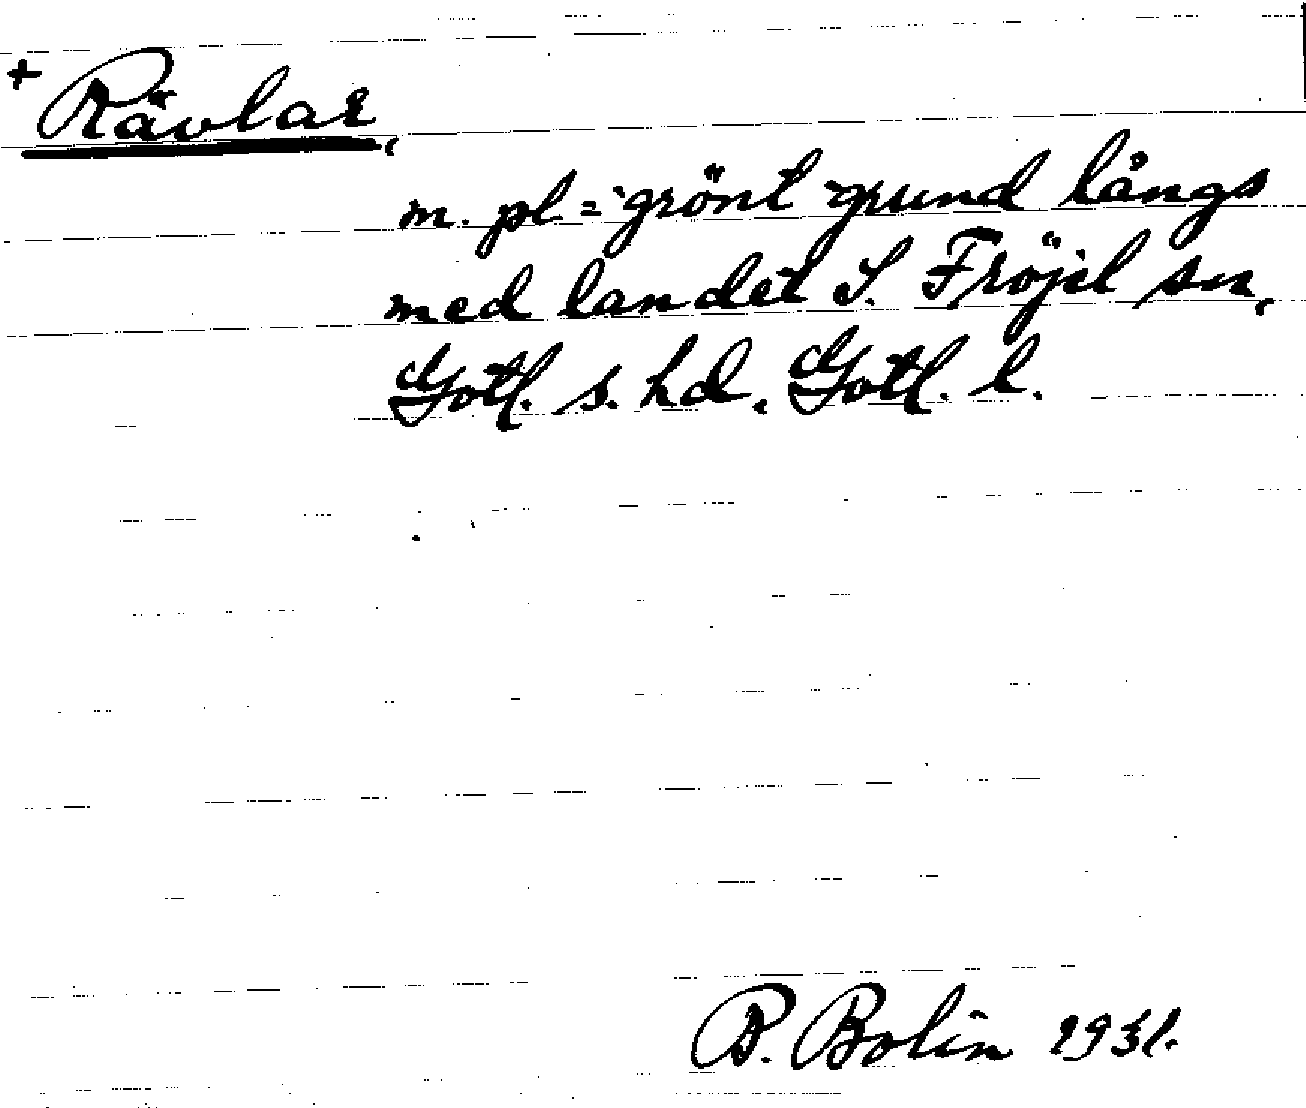 + Rävlar,
m. pl = grönt grund långs
med landet S. Fröjel sn,
Gotl. s. hd, Gotl. l.
P. Bolin 1931.